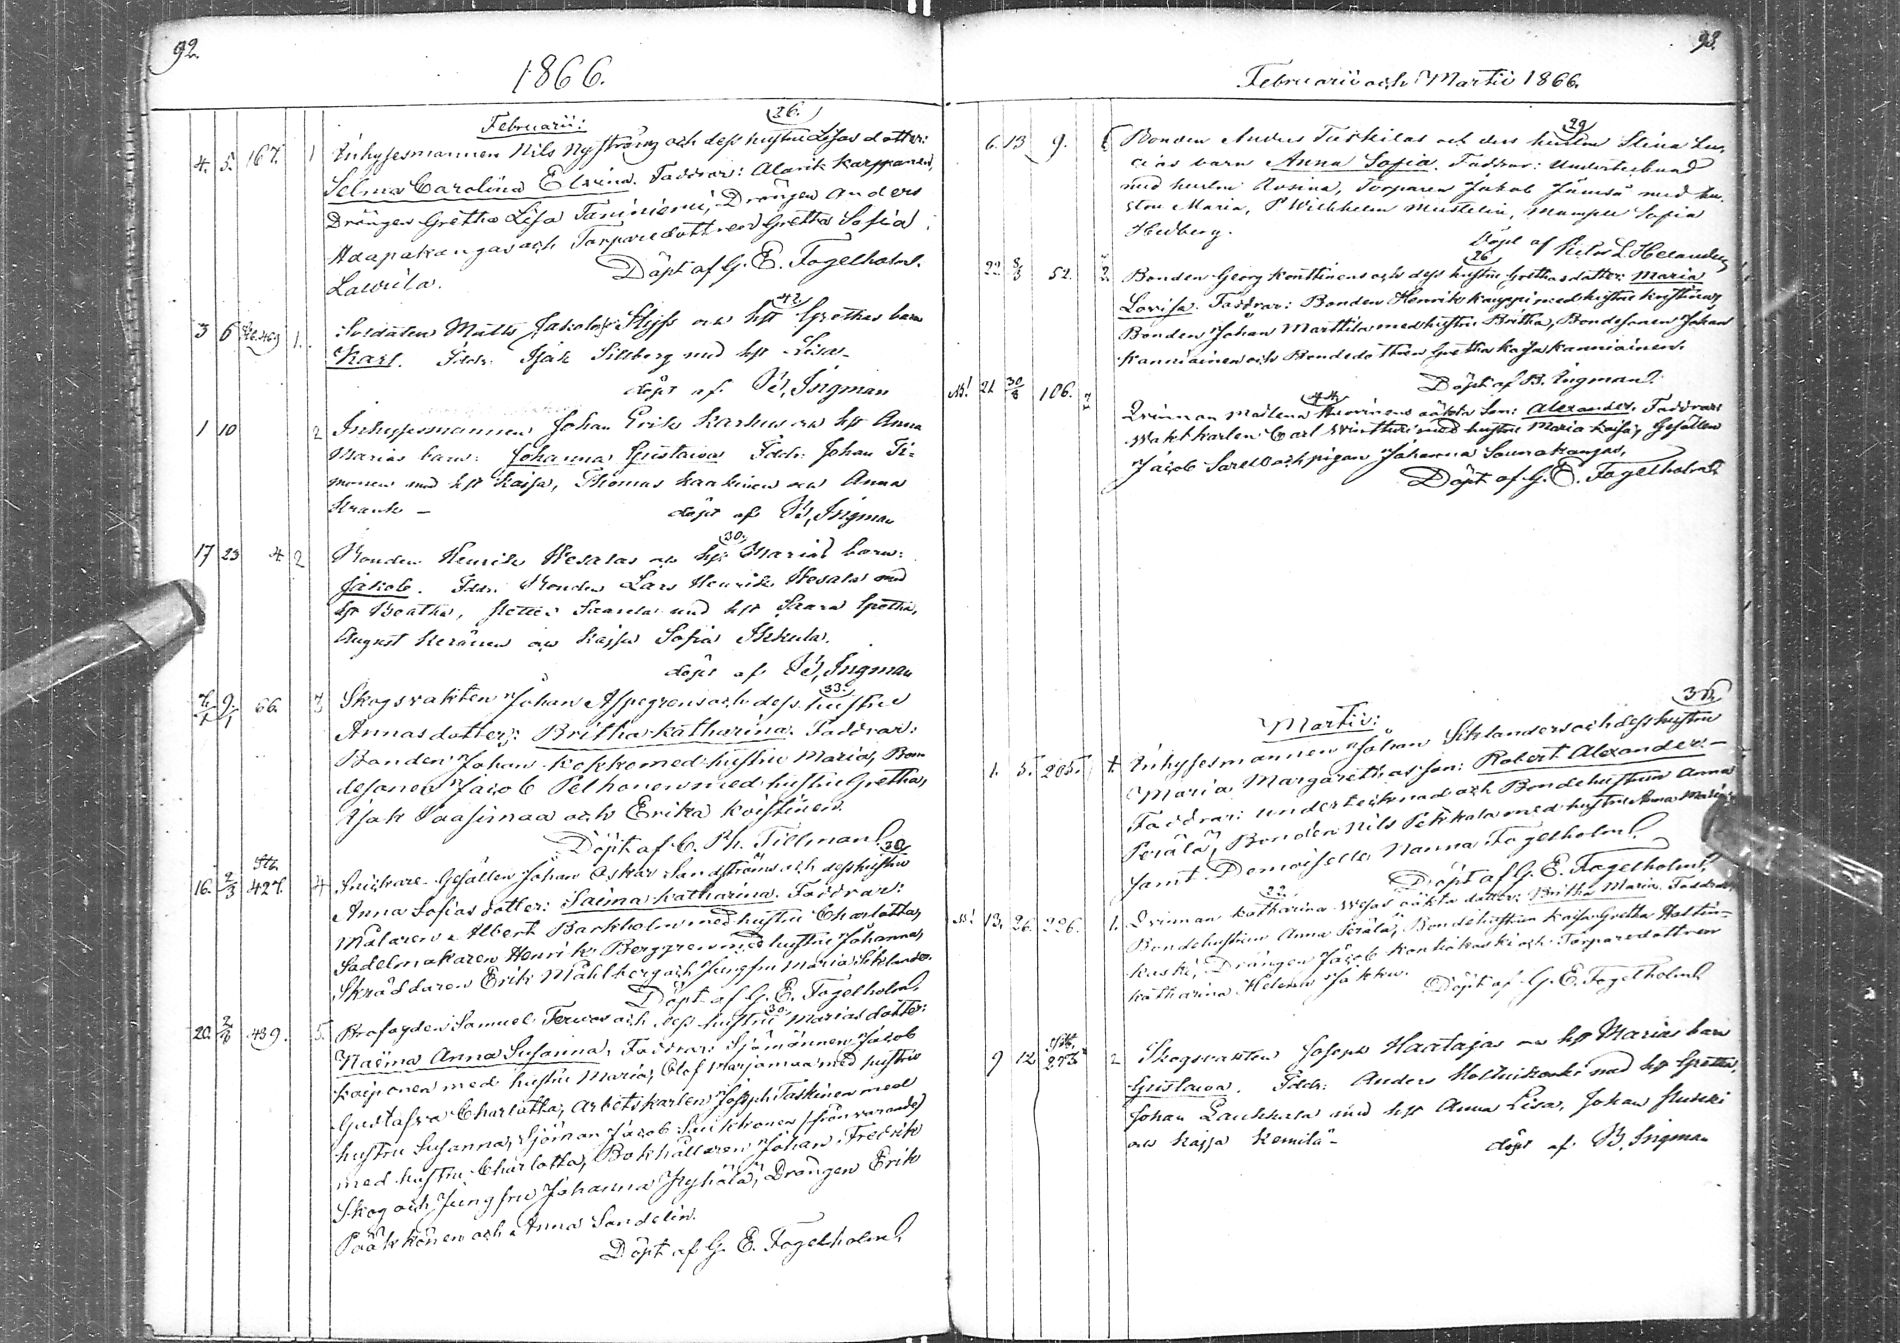 92.
1866.
Februarii:
26.
4. 5. 167. 1 Inhysesmannen Nils Nyströms och dess hustru Lisas dotter:
Selma Carolina Elvira. Faddrar: Alarik Karppanen,
Drängen Gretha Lisa Taniniemi, Drängen Anders
Haapakangas och Torparedottren Gretha Sofia
Laurila. Döpt af G. E. Fogelholm.
42.
3 6 1. Soldaten Matts Jakobs Slijfs och hst Grethas barn
Karl. Fddr. Isak Sillberg med hst Lisa –
döpt af B. Ingman
1 10 2 Inhysesmannen Johan Erik Karhus och hst Anna
Marias barn: Johanna Gustava Fddr. Johan Ti=
monen med hst Kaisa, Thomas Kaakinen och Anna
Krank – döpt af B. Ingman
30.
17 23 4 2 Bonden Henrik Hesalas och hst Marias barn:
Jakob. Fddr. Bonden Lars Henrik Hesala med
hst Beatha, med hst Saara Gretha,
August Keränen och Kajsa Sofia Ikkala.
döpt af B. Ingman
33.
9/1 66. 3 Skogsvakten Johan Aspegrens och dess hustru
Annas dotter: Britha Katharina. Faddrar:
Bonden Johan Koskko med hustru Maria, Bon
desonen Jacob Pelhonen med hustru Gretha,
Isak Paasimaa och Erika Koistinen.
Döpt af C. Ph. Tillman.
30
16. 2/3 427. 4 Snickare-Gesällen Johan Oskar Sandströms och dess hustru
Anna Sofias dotter: Saima Katharina. Faddrar:
Målaren Albert Barkholm med hustru Charlotta,
Sadelmakaren Henrik Berggren med hustru Johanna,
Skräddaren Erik Mahlberg och Jungfru Maria Siklander.
Döpt af G. E. Fogelholm.
30.
20. 439. 5. Profogden Samuel Tervos och dess hustru Marias dotter:
Naëma Anna Susanna, Faddrar: Sjömannen Jacob
Kaiponen med hustru Maria, Olof Marjamaa med hustru
Gustafva Charlotta, Arbetskarlen Joseph Taskinen med
hustru Susanna, Sjöman Jacob Suikkonen (frånvarande)
med hustru Charlotta, Bokhållaren Johan Fredrik
Skog och Jungfru Johanna Kyhälä, Drängen Erik
Pääkkönen och Anna Sandelin.
Döpt af G. E. Fogelholm.
93.
Februarii och Martii 1866.
29
6. 13 9. Bonden Anders Turkilas och dess hustru Stina Lu-
cias barn Anna Sofia. Faddrar: Undertecknad
med hustru Rosina, Torparen Jakob Jämsä med hu-
stru Maria, P. Wilhhelm Mustelin, Mamsell Sofia
Hedberg. Döpt af Victor L. Helander
26
22 52. 2. Bonden Georg Konttinens och dess hustru Grethas dotter: Maria
Lovisa. Faddrar: Bonden Henrik Kauppi med hustru Kristina,
Bonden Johan Marttila med hustru Britha, Bondesonen Johan
Kanniainen och Bondedottren Gretha Kajsa Kanniainen.
Döpt af B. Ingman.
44
NB! 21 106. Qvinnan Maelena oäkta son: Alexander. Faddrar:
Waktkarlen Carl Winther med hustru Maria Kaisa, Gesällen
Jacob Sarell och pigan Johanna Sounakangas.
Döpt af G. E. Fogelholm.
Martii:
1. 5. 205. 1. Inhysesmannen Johan Siklanders och dess hustru
Maria Margarethas son: Robert Alexander. –
Faddrar: undertecknad och Bondehustrun Anna
Perälä, Bonden Nils Pekkala med hustru Anna Maria,
samt Demoiselle Nanna Fogelholm.
Döpt af G. E. Fogelholm.
22.
NB! 13. 26. 226. 1. Qvinnan Katharina Wesas oäkta dotter: Britha Maria. Faddrar:
Bondehustrun Anna Perälä, Bondehustrun Kaisa Gretha Holtin-
koski, Drängen Jacob Konttikoski och Torparedottren
Katharina Helena Jakku. Döpt af G. E. Fogelholm.
9 12 2 Skogsvakten Joseph Haatajas och hst Marias barn
Gustava. Fddr: Anders Holtinkoski med hst Gretha,
Johan Laukkala med hst Anna Lisa, Johan
och Kajsa Kemilä – döpt af B. Ingman